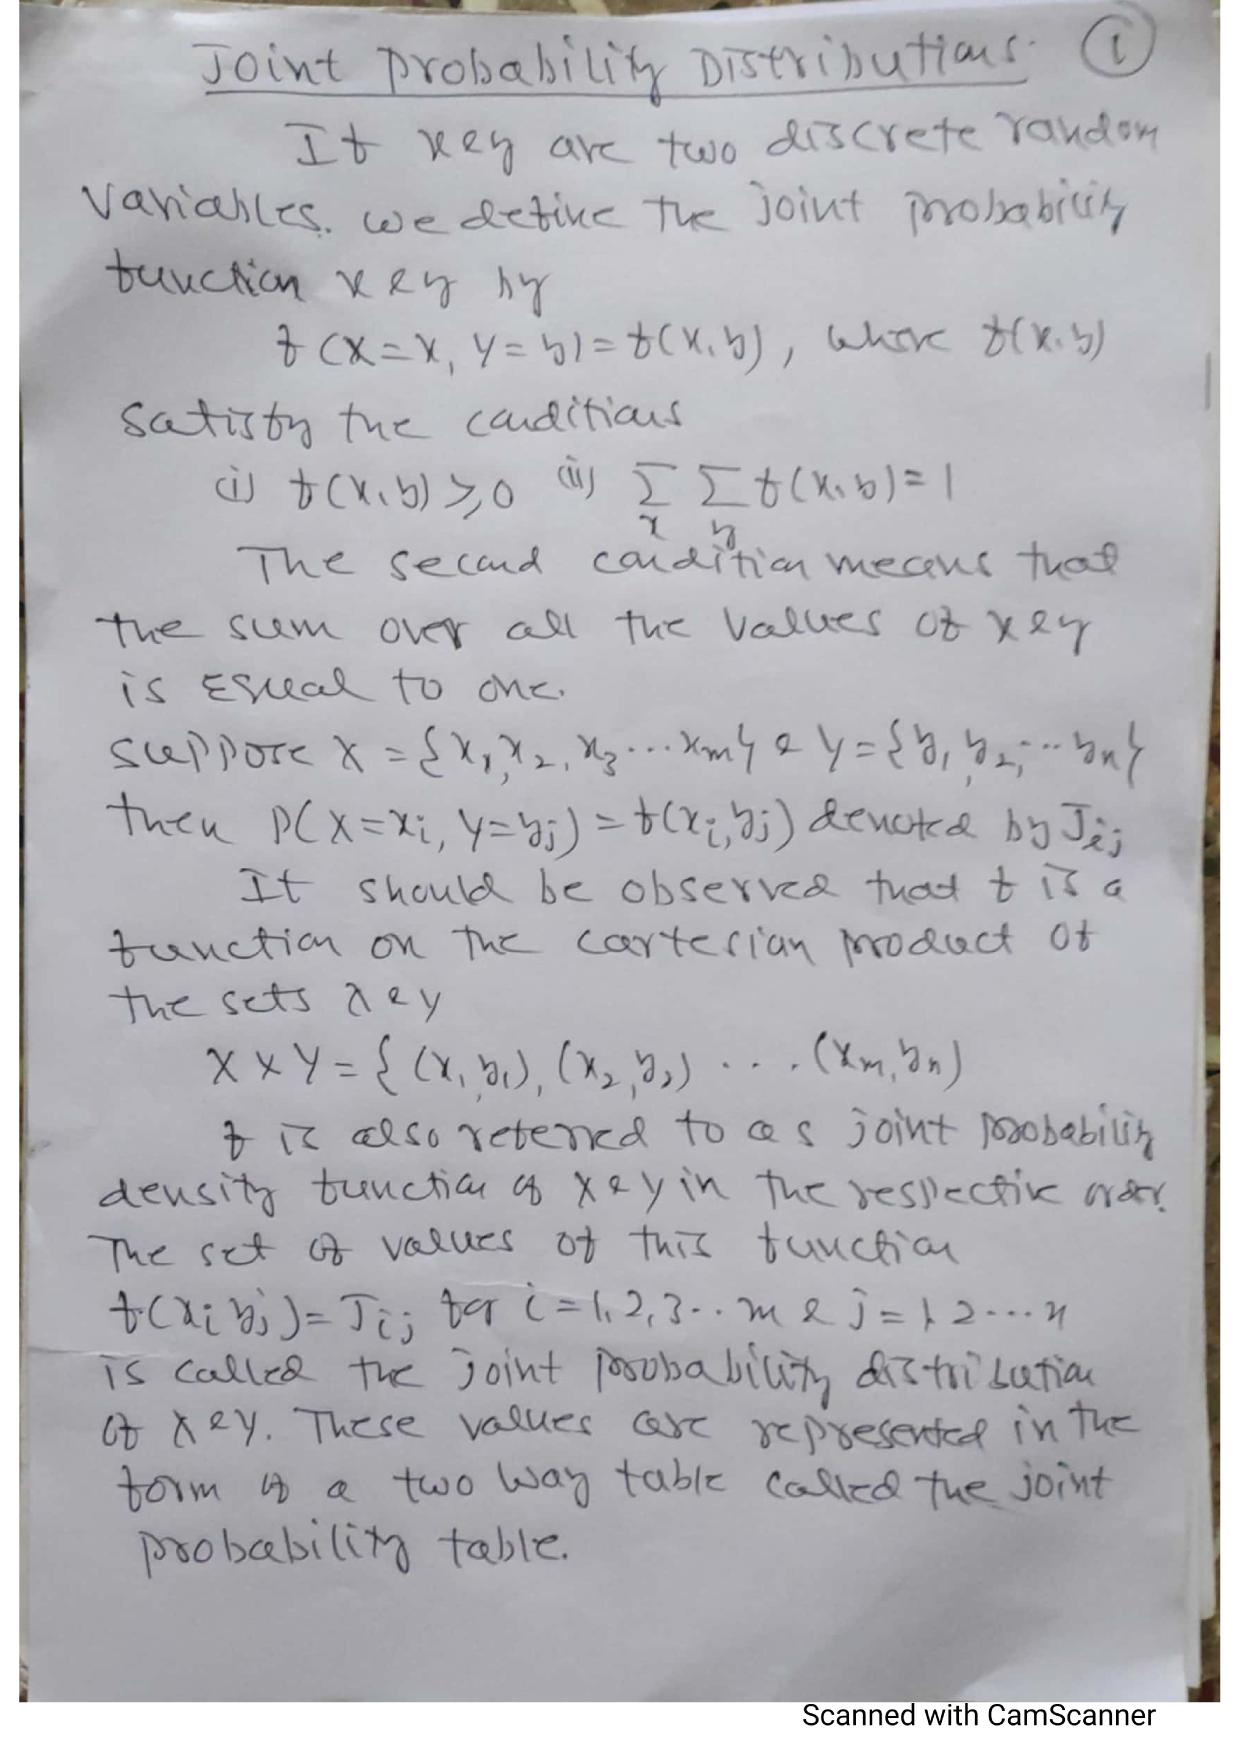 Joint Probability Distributions. 1
If x & y are two discrete random
variables. we define the joint probability
function x & y by
f(X=x, Y=y)=f(x,y), where f(x,y)
satisfy the conditions
(i) f(x,y) ≥ 0 (ii) Σ Σ f(x,y)=1
x y
The second condition means that
the sum over all the values of x & y
is Equal to one.
suppose X = {x₁, x₂, x₃ ... xm} & Y = {y₁, y₂, ... yn}
then P(X=xi, Y=yj) = f(xi,yj) denoted by Jij
It should be observed that f is a
function on the cartesian product of
the sets X & Y
X x Y = { (x₁,y₁), (x₂,y₂) .... (xm,yn)
f is also referred to as joint probability
density function of X & Y in the respective order.
The set of values of this function
f(xi yj)= Jij for i = 1,2,3.. m & j = 1, 2 ... n
is called the joint probability distribution
of X & Y. These values are represented in the
form of a two way table called the joint
probability table.
Scanned with CamScanner